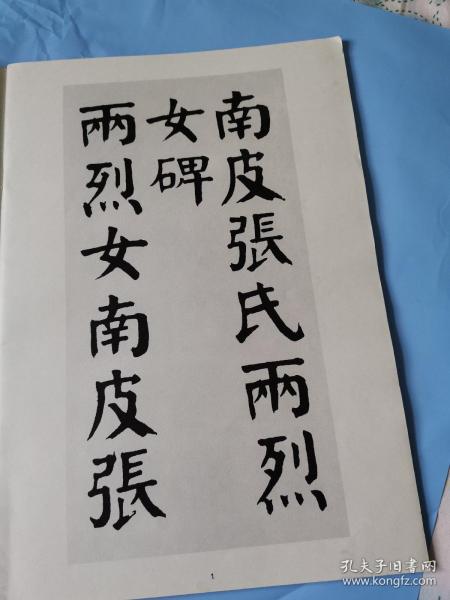 南皮張氏兩烈
女碑
兩烈女南皮張
1
孔夫子旧书网
www.kongfz.com